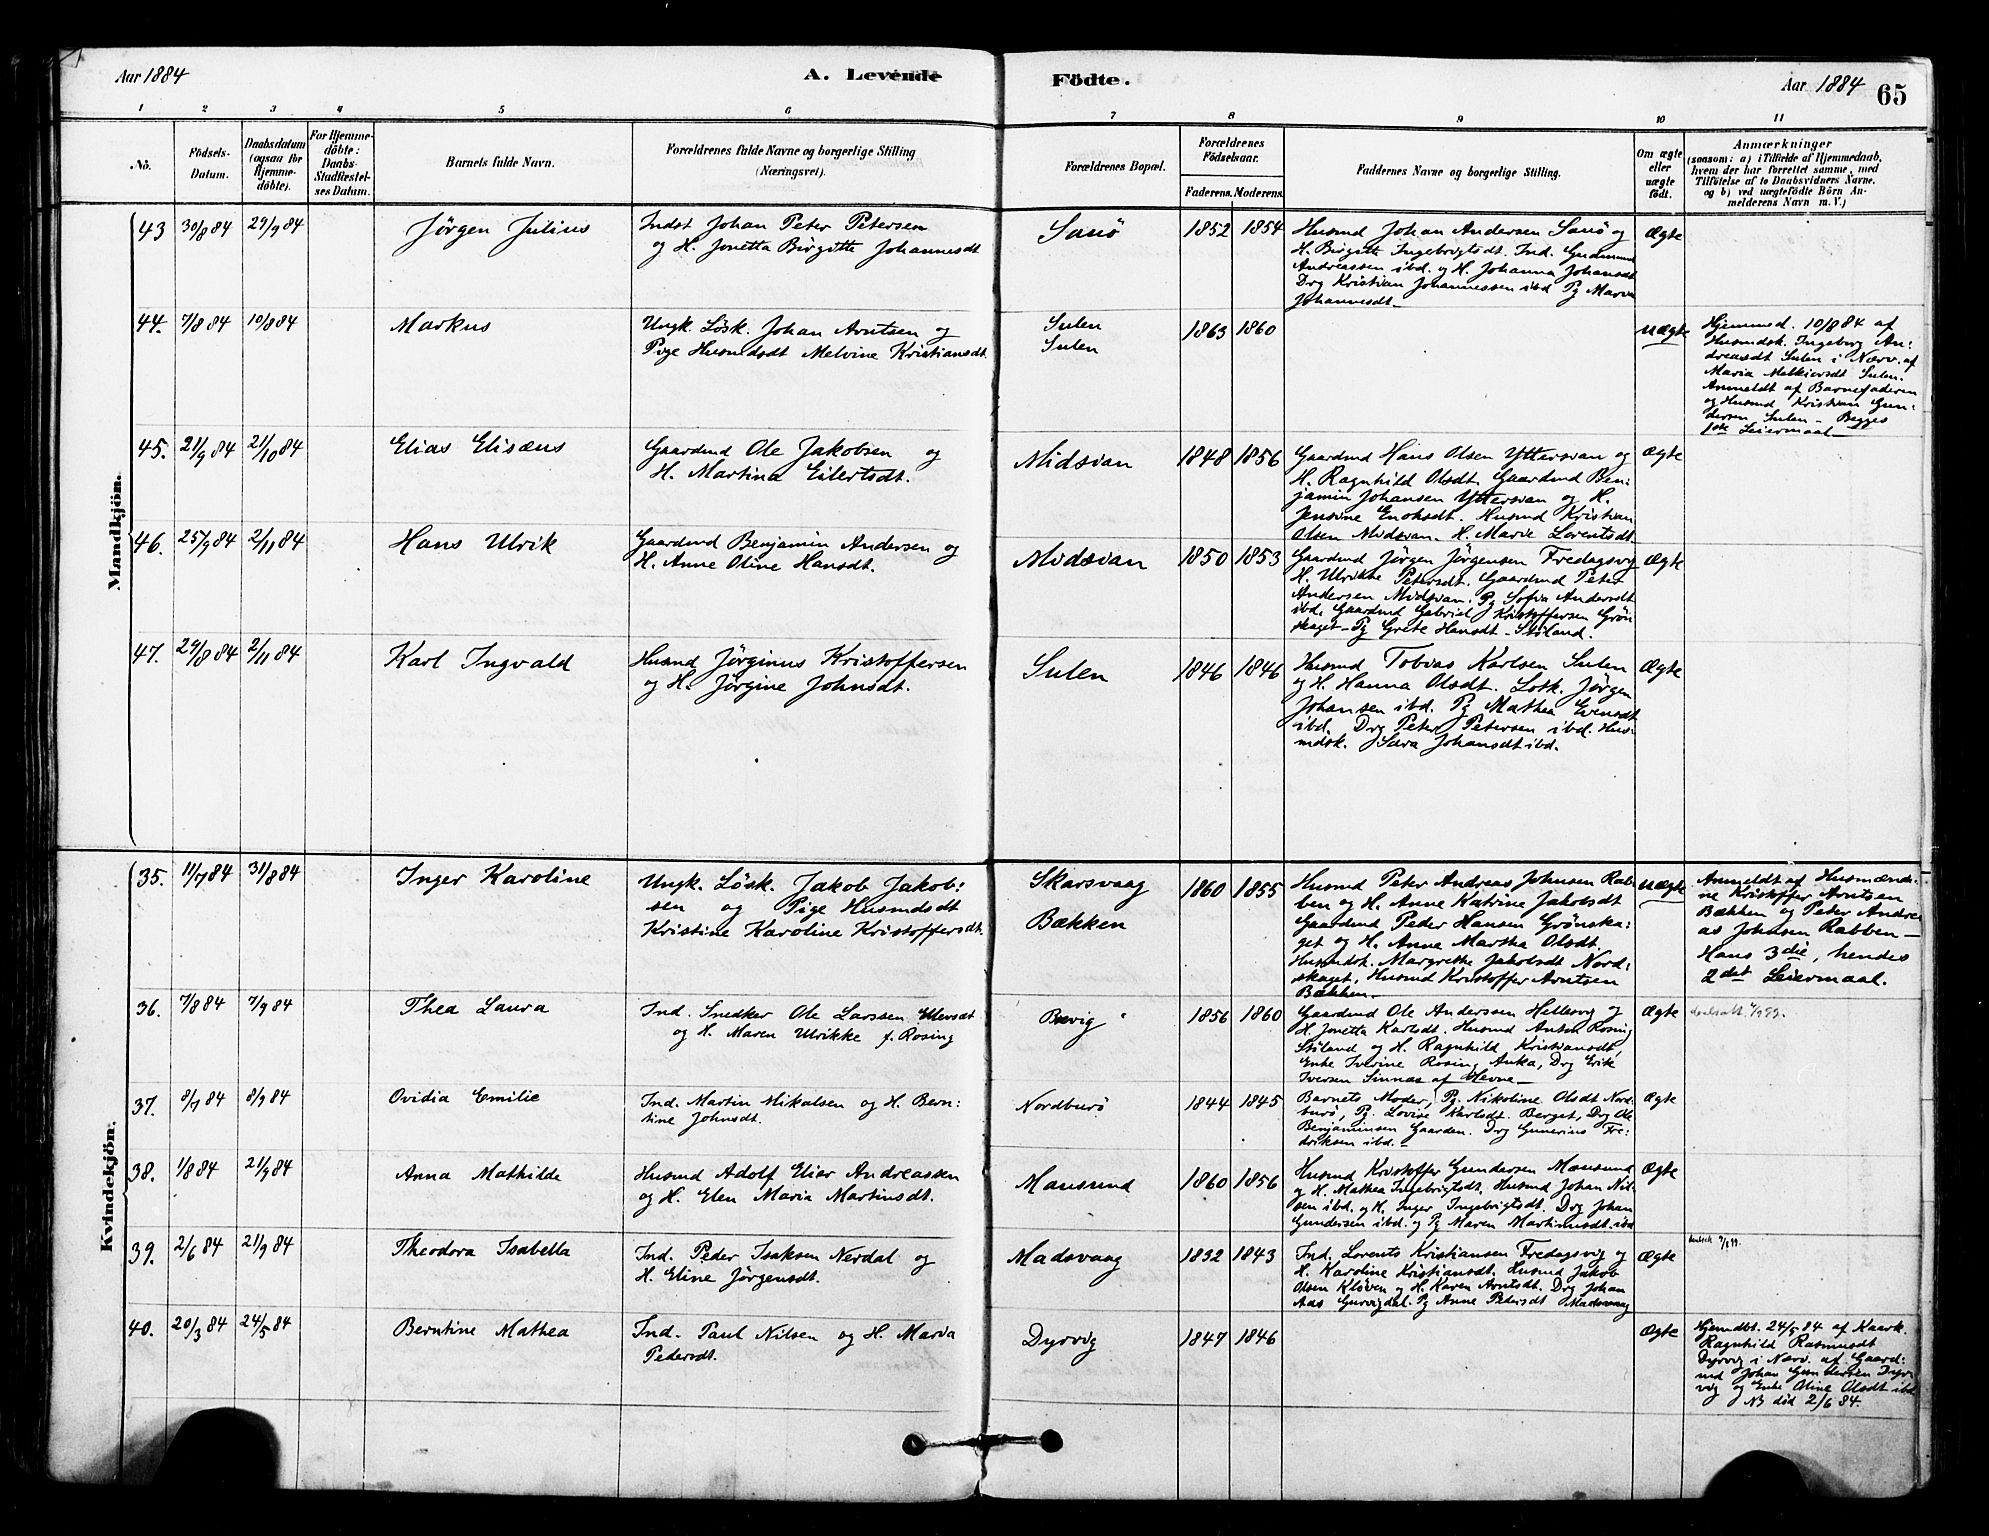 Aar 1884
A. Levende
Födte.
Aar 1884
65
1 2 3 4 5 6 7 8 9 10 11
No.
Födsels-
Datum.
Daabsdatum
(ogsaa for
Hjemme-
döbte).
For Hjemme-
döbte:
Daabs-
Stadfæstel-
ses Datum.
Barnets fulde Navn.
Forældrenes fulde Navne og borgerlige Stilling
(Næringsvei).
Forældrenes Bopæl.
Forældrenes
Födselsaar.
Faderens. Moderens.
Faddernes Navne og borgerlige Stilling.
Om ægte
eller
uægte
födt.
Anmærkninger
(saasom: a) i Tilfælde af Hjemmedaab,
hvem der har forrettet samme, med
Tilföielse af to Daabsvidners Navne,
og b) ved uægtefödte Börn An-
melderens Navn m. V.)
Mandkjön.
43 30/8 84 29/9 84
Jørgen Julius
Indst Johan Peter Petersen
og H. Jonetta Birgitte Johannesdt
Sanö
1852 1854
Husmd Johan Andersen Sanö og
H. Birgitte Ingebrigtsdt. Ind. Gudmund
Andreassen ibd. og H. Johanna Johansdt
Drg Kristian Johannessen ibd Pg Maria
Johannesdt
Ægte
44. 7/8 84 10/8 84
Markus
Ungk. Løsk. Johan Arntsen og
Pige Husmdsdt Melvine Kristiansdt
Sulen
Sulen
1863 1860
uægte
Hjemmed. 10/8 84 af
Husmdsk. Ingeborg An-
dreasdt Sulen i Nærv. af
Maria Melkiersdt Sulen.
Anmeldt af Barnefaderen
og Husmd Kristian Gun-
dersen Sulen - Begges
1ste Leiermaal
45. 21/9 84 21/10 84
Elias Elisæus
Gaardmd Ole Jakobsen og
H. Martina Eilertsdt.
Midsian
1848 1856
Gaardmd Hans Olsen Yttersian og
H. Ragnhild Olsdt. Gaardmd Ben-
jamin Johansen Yttersian og H.
Jensine Enoksdt. Husmd Kristian
Olsen Midsian. H. Marie Lorentsdt
Ægte
46. 25/9 84 2/11 84
Hans Ulrik
Gaardmd Benjamin Andersen og
H. Anne Oline Hansdt.
Midsian
1850 1853
Gaardmd Jörgen Jörgensen Fredagsvig
H. Ulrikke Petersdt. Gaardmd Peter
Andersen Midsian. Pg Sofia Andersdt
ibd. Gaardmd Gabriel Kristoffersen Grön-
skaget - Pg Grete Hansdt - Stöland.
Ægte
47. 29/8 84 2/11 84
Karl Ingvald
Husmd Jørginus Kristoffersen
og H. Jørgine Johnsdt.
Sulen
1846 1846
Husmd Tobias Karlsen Sulen
og H. Hanna Olsdt. Losk. Jørgen
Johansen ibd. Pg Mathea Evensdt
ibd. Drg Peter Petersen ibd. Hus-
mdsk. Sara Johansdt ibd.
Ægte
Kvindekjön.
35. 11/7 84 31/8 84
Inger Karoline
Ungk. Løsk. Jakob Jakob-
sen og Pige Husmdsdt
Kristine Karoline Kristoffersdt.
Skarsvaag
Bækken
1860 1855
Husmd Peter Andreas Johnsen Rab-
ben og H. Anne Katrine Jakobsdt
Gaardmd Peder Hansen Grönska-
get og H. Anne Martha Olsdt.
Husmdsk. Margrethe Jakobsdt Nord-
skaget. Husmd Kristoffer Arntsen
Bækken
uægte
Anmeldt af Husmænde-
ne Kristoffer Arntsen
Bækken og Peter Andre-
as Johnsen Rabben -
Hans 3die, hendes
2det Leiermaal.
36. 7/8 84 7/9 84
Thea Laura
Ind. Snedker Ole Larssen
og H. Maren Ulrikke f. Rosing
Bevig
1856 1860
Gaardmd Ole Anderssen Hellesvig og
H. Jonetta Karlsdt. Husmd Anton Rosing
Stöland og H. Ragnhild Kristiansdt,
Enke Iverine Rosing Anka, Drg Erik
Iversen Sinnæs af Hevne
Ægte
37. 8/7 84 8/9 84
Ovidia Emilie
Ind. Martin Mikalsen og H. Bern-
tine Johnsdt.
Nordburö
1844 1845
Barnets Moder, Pg. Nikoline Olsdt Nord-
burö, Pg. Lovise Karlsdt. Berget, Drg Ole
Benjaminsen Gaarden. Drg Gunerius Fre-
driksen ibd.
Ægte
38. 1/8 84 21/9 84
Anna Mathilde
Husmd Adolf Elias Andreassen
og H. Elen Maria Martinsdt.
Mausund
1860 1856
Husmd Kristoffer Gundersen Mausund
og H. Mathea Ingebrigtsdt, Husmd Johan Nil-
sen ibd. og H. Inger Ingebrigtsdt. Drg Johan
Gundersen ibd. og Pg Maren Martinusdt. ibd
Ægte
39. 2/6 84 21/9 84
Theodora Isabella
Ind. Peder Isaksen Nerdal og
H. Eline Jörgensdt.
Madsvaag
1832 1843
Ind. Lorents Kristiansen Fredagsvig og
H. Karoline Kristiansdt. Husmd Jakob
Olsen Klöven og H. Karen Arntsdt. Drg Johan
Aas Gurvigdal. Pg Anne Petersdt Madsvaag
Ægte
40. 20/3 84 24/5 84
Berntine Mathea
Ind. Paul Nilsen og H. Maria
Pedersdt.
Dyrvig
1847 1846
Ægte
Hjemdbt. 24/5 84 af Kaark.
Ragnhild Rasmusdt
Dyrvig i Nærv. af Gaard-
md Johan Gundersen Dyr-
vig og Enke Oline Olsdt ibd
NB död 2/6 84.